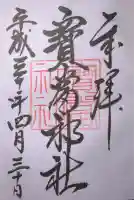 奉拝
寶當神社
平成三十年四月三十日